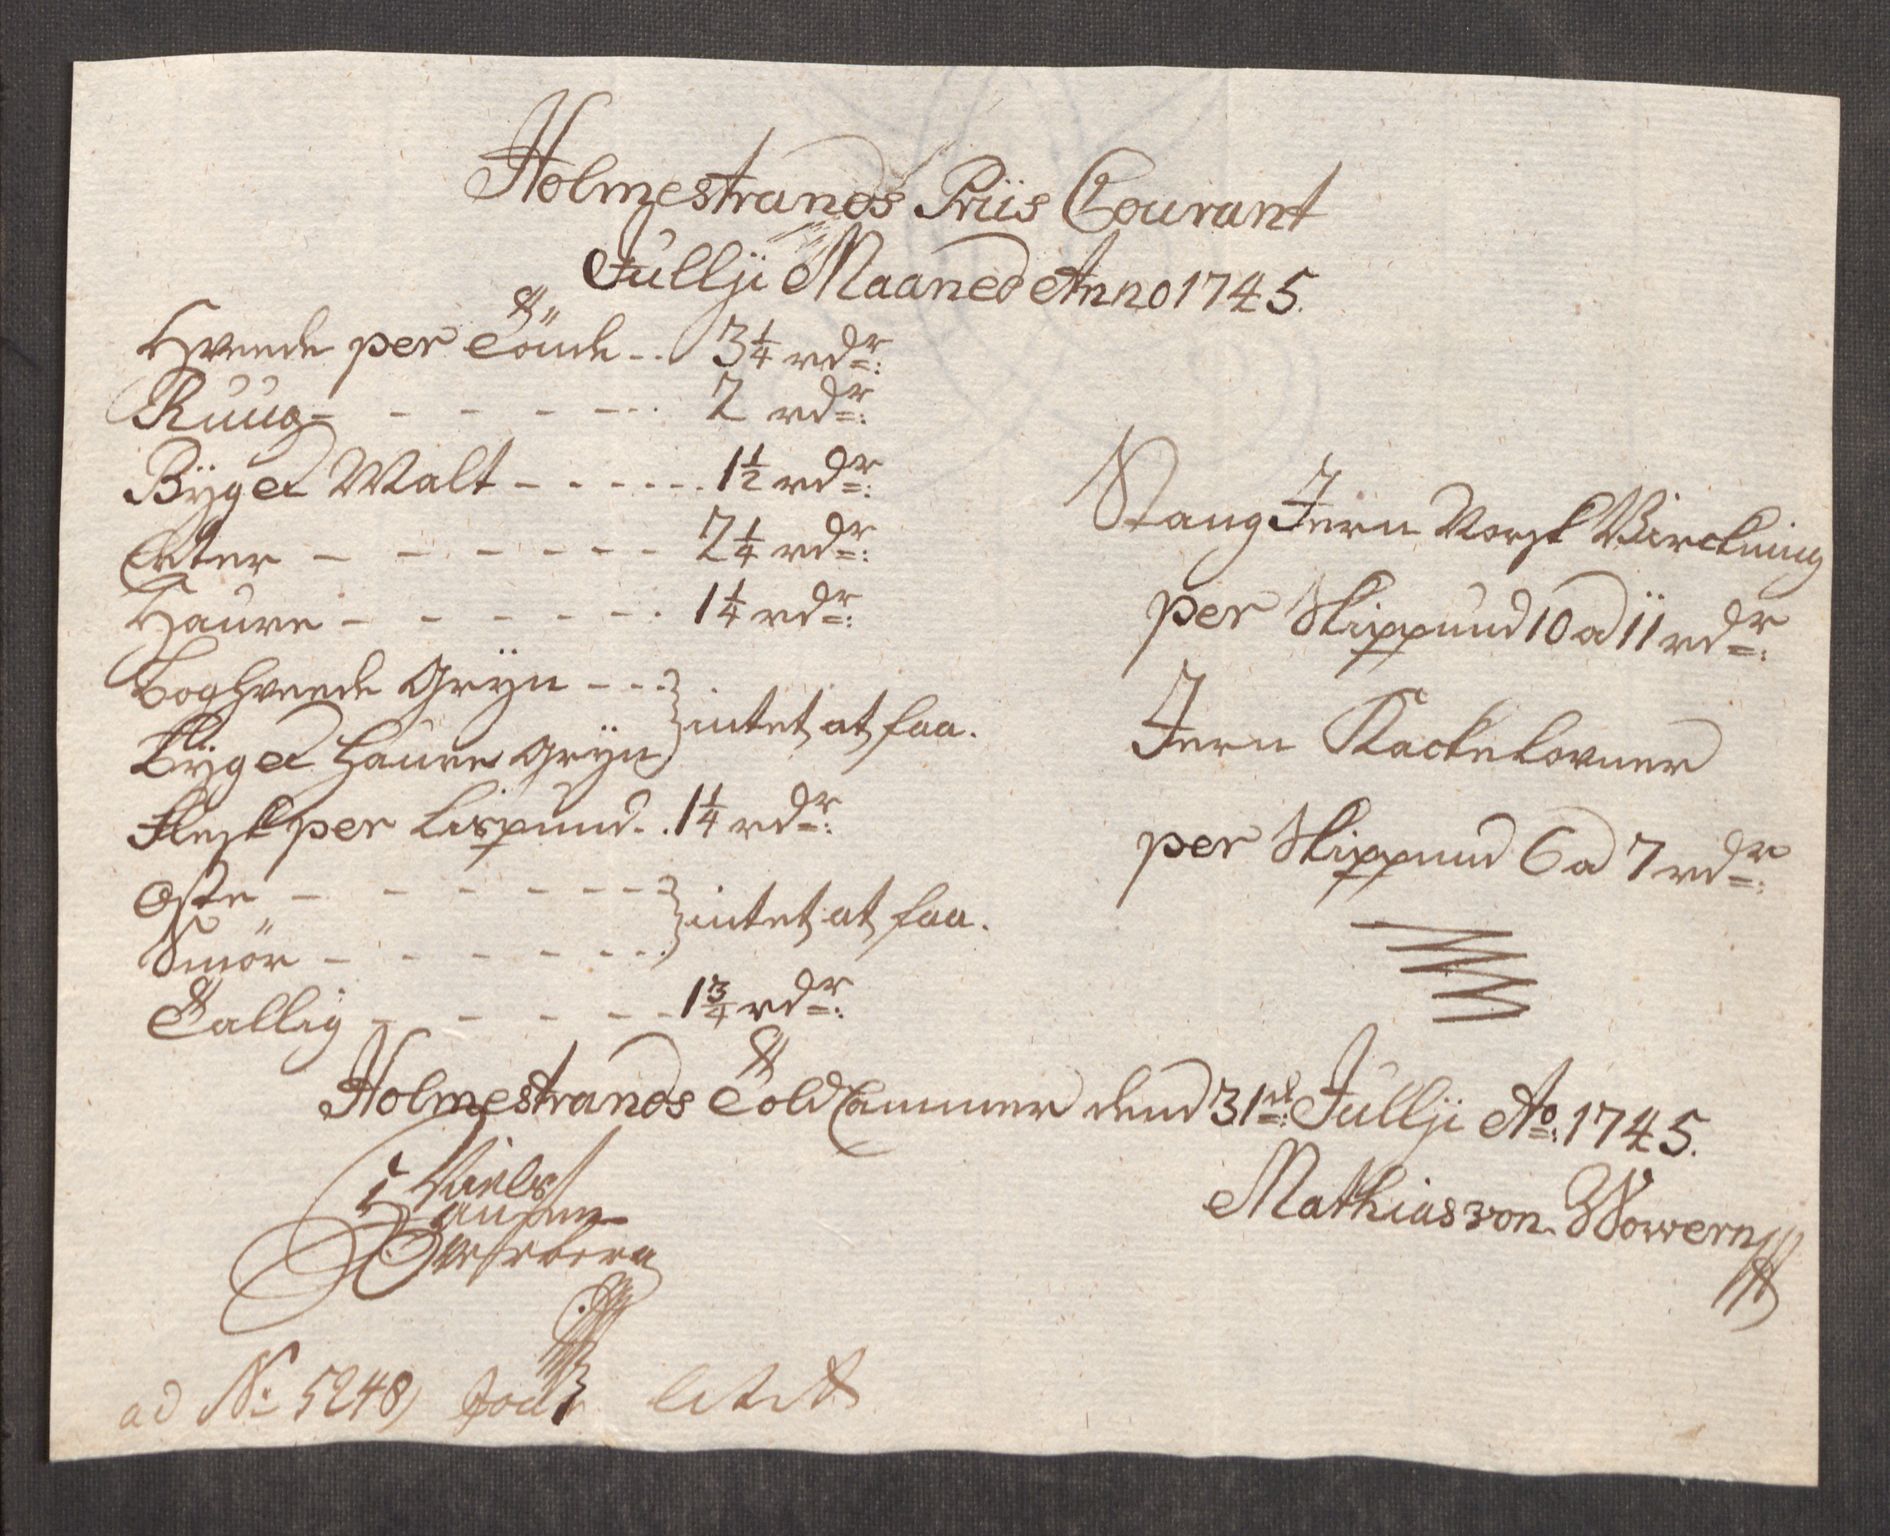 Holmestrands Priis Courant
Jullji Maaned Anno 1745.
Hveede per Tönde - - 3 1/4 rdr:
Ruug - - - - - - 2 rdr:
Byg et Malt - - - - - - 1 1/2 rdr:
Erter - - - - - - 2 1/4 rdr:
Haure - - - - - - 1 1/4 rdr:
Boghveede Gryn - - -
Byg et Haure Gryn
intet at faa.
Flesk per Lispund - - 1 1/4 rdr:
Oste - - - - - -
Smör - - - - - -
intet at faa.
Tallig - - - - - 1 3/4 rdr:
Stang Jern Norsk Virckning
per Skippund 10 a 11 rdr:
Jern Kackelovner
per Skippund 6 a 7 rdr:
Holmestrands Told Cammer dend 31te: Jullji Ao: 1745.
Niels
Mathias von Wowern
ad No 5248)